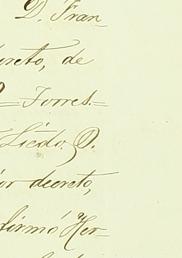 D. Fran
creto, de
Torres.=
Licdo. D.
or decreto,
firmó Her-